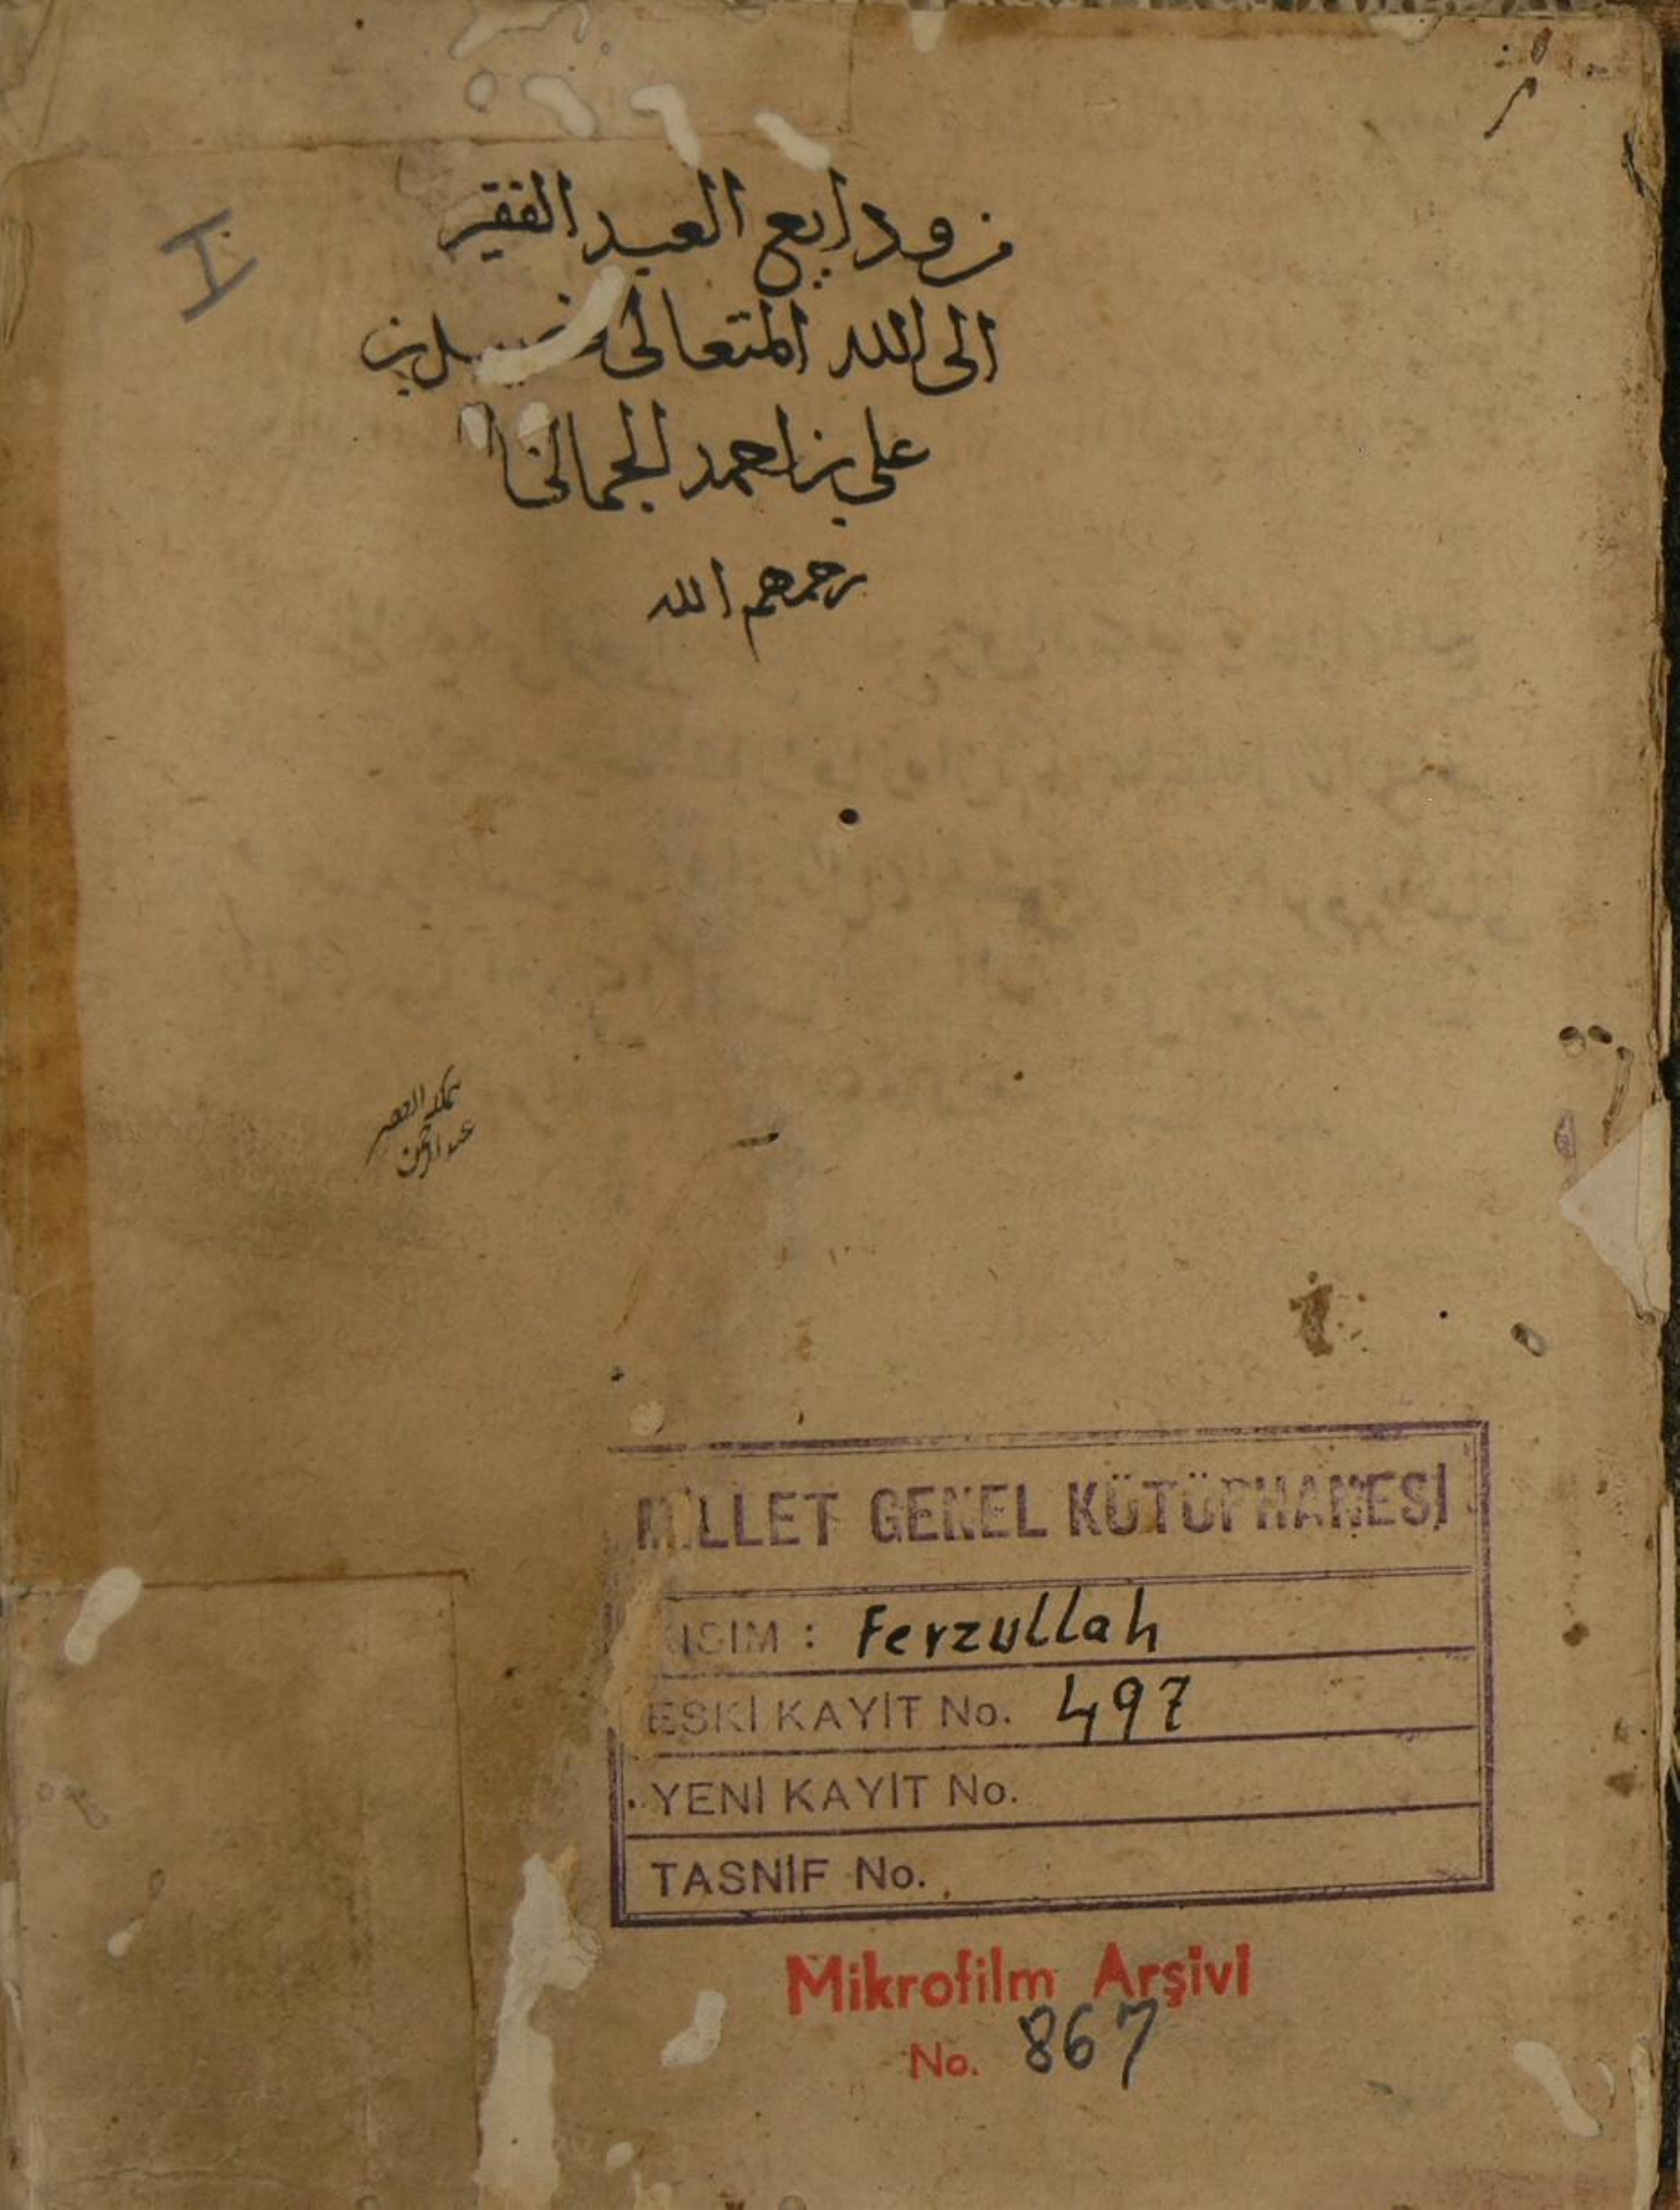 من ودايع العبد الفقير
الى الله المتعالى فضيل بن
علي بن احمد الجمالي
رحمهم الله
الفقير
عبد الرحمن
I
MİLLET GENEL KÜTÜPHANESİ
KISIM : Feyzullah
ESKİ KAYİT No. 497
YENİ KAYİT No.
TASNİF No.
Mikrofilm Arşivi
No. 867